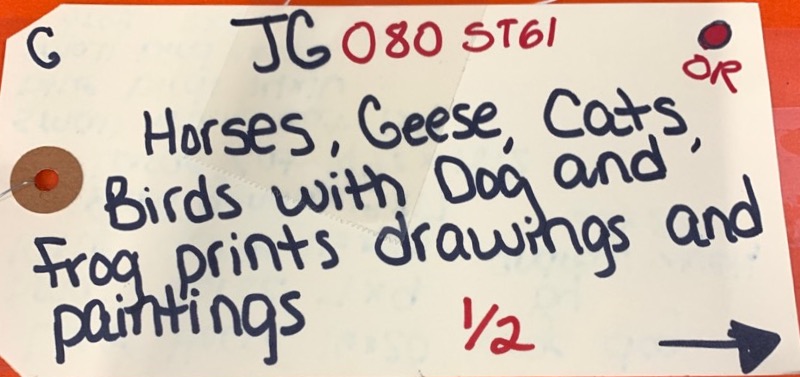 G JG 080 ST61
O/R
Horses, Geese, Cats,
Birds with Dog and
Frog prints drawings and
paintings 1/2